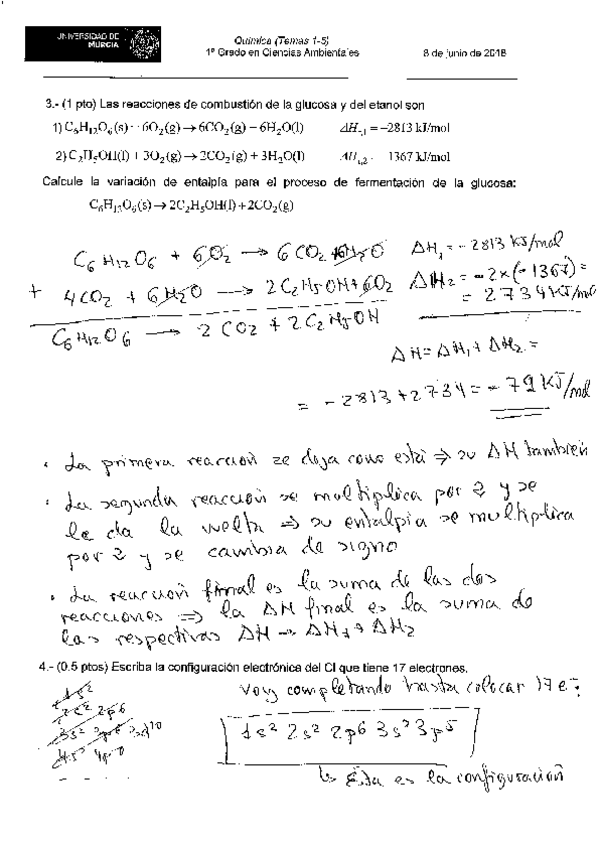 UNIVERSIDAD DE
MURCIA
Química (Temas 1-5)
1º Grado en Ciencias Ambientales
8 de junio de 2018
3.- (1 pto) Las reacciones de combustión de la glucosa y del etanol son
1) C₆H₁₂O₆(s) + 6O₂(g) → 6CO₂(g) + 6H₂O(l) ΔH₁ = −2813 kJ/mol
2) C₂H₅OH(l) + 3O₂(g) → 2CO₂(g) + 3H₂O(l) 1367 kJ/mol
Calcule la variación de entalpía para el proceso de fermentación de la glucosa:
C₆H₁₂O₆(s) → 2C₂H₅OH(l) + 2CO₂(g)
C₆H₁₂O₆ + 6O₂ → 6CO₂ + 6H₂O ΔH₁ = −2813 KJ/mol
+ 4CO₂ + 6H₂O → 2C₂H₅OH + 6O₂ ΔH₂ = −2×(−1367) =
= 2734 KJ/mol
C₆H₁₂O₆ → 2CO₂ + 2C₂H₅OH
ΔH = ΔH₁ + ΔH₂ =
= −2813 + 2734 = −79 KJ/mol
· La primera reacción se deja como está ⇒ su ΔH también
· La segunda reacción se multiplica por 2 y se
le da la vuelta ⇒ su entalpía se multiplica
por 2 y se cambia de signo
· La reacción final es la suma de las dos
reacciones ⇒ la ΔH final es la suma de
las respectivas ΔH → ΔH₁ + ΔH₂
4.- (0.5 ptos) Escriba la configuración electrónica del Cl que tiene 17 electrones.
1s²
2s² 2p⁶
3s² 3p⁶ 3d¹⁰
4s² 4p
voy completando hasta colocar 17 e⁻:
1s² 2s² 2p⁶ 3s² 3p⁵
↳ Esta es la configuración